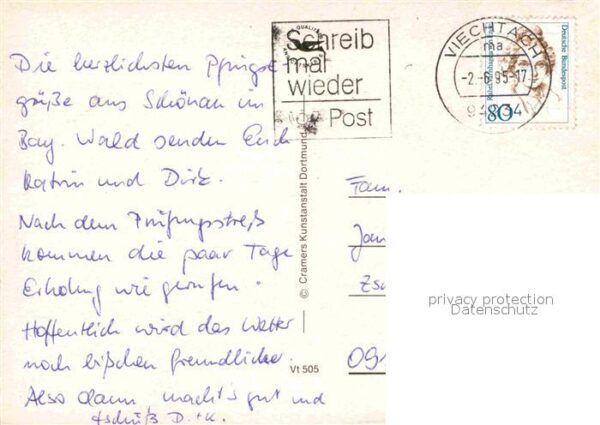 Die herzlichsten Pfingst-
grüße aus Schönau im
Bay. Wald senden Euch
Katrin und Dirk.
Nach dem Prüfungsstreß
kommen die paar Tage
Erholung wie gerufen.
Hoffentlich wird das Wetter
noch bißchen freundlicher.
Also dann macht's gut und
tschüß D.+K.
Schreib
mal
wieder
Post
VIECHTACH
ma
-2.-6.95-17
94234
Deutsche Bundespost
80
© Cramers Kunstanstalt Dortmund
Vt 505
Fam.
Jan
Zsc
091
privacy protection
Datenschutz